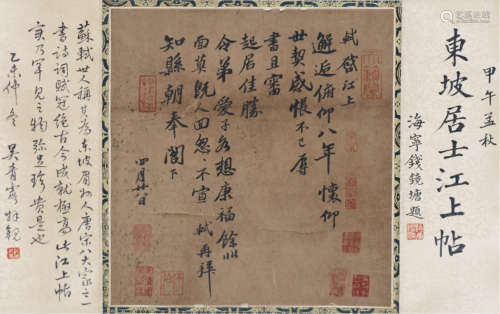 甲午孟秋
東坡居士江上帖
海寧錢鏡塘題
軾啓江上
邂逅俯仰八年懷仰
世契感悵不已辱
書且審
起居佳勝
令弟愛子各想康福餘非
面莫既人回忽忽不宣軾再拜
知縣朝奉閣下
四月廿八日
蘇軾世人稱其為東坡眉州人唐宋八大家之一
書詩詞賦冠絕古今成就極高此江上帖
實乃罕見之物彌足珍貴是也
乙未仲冬